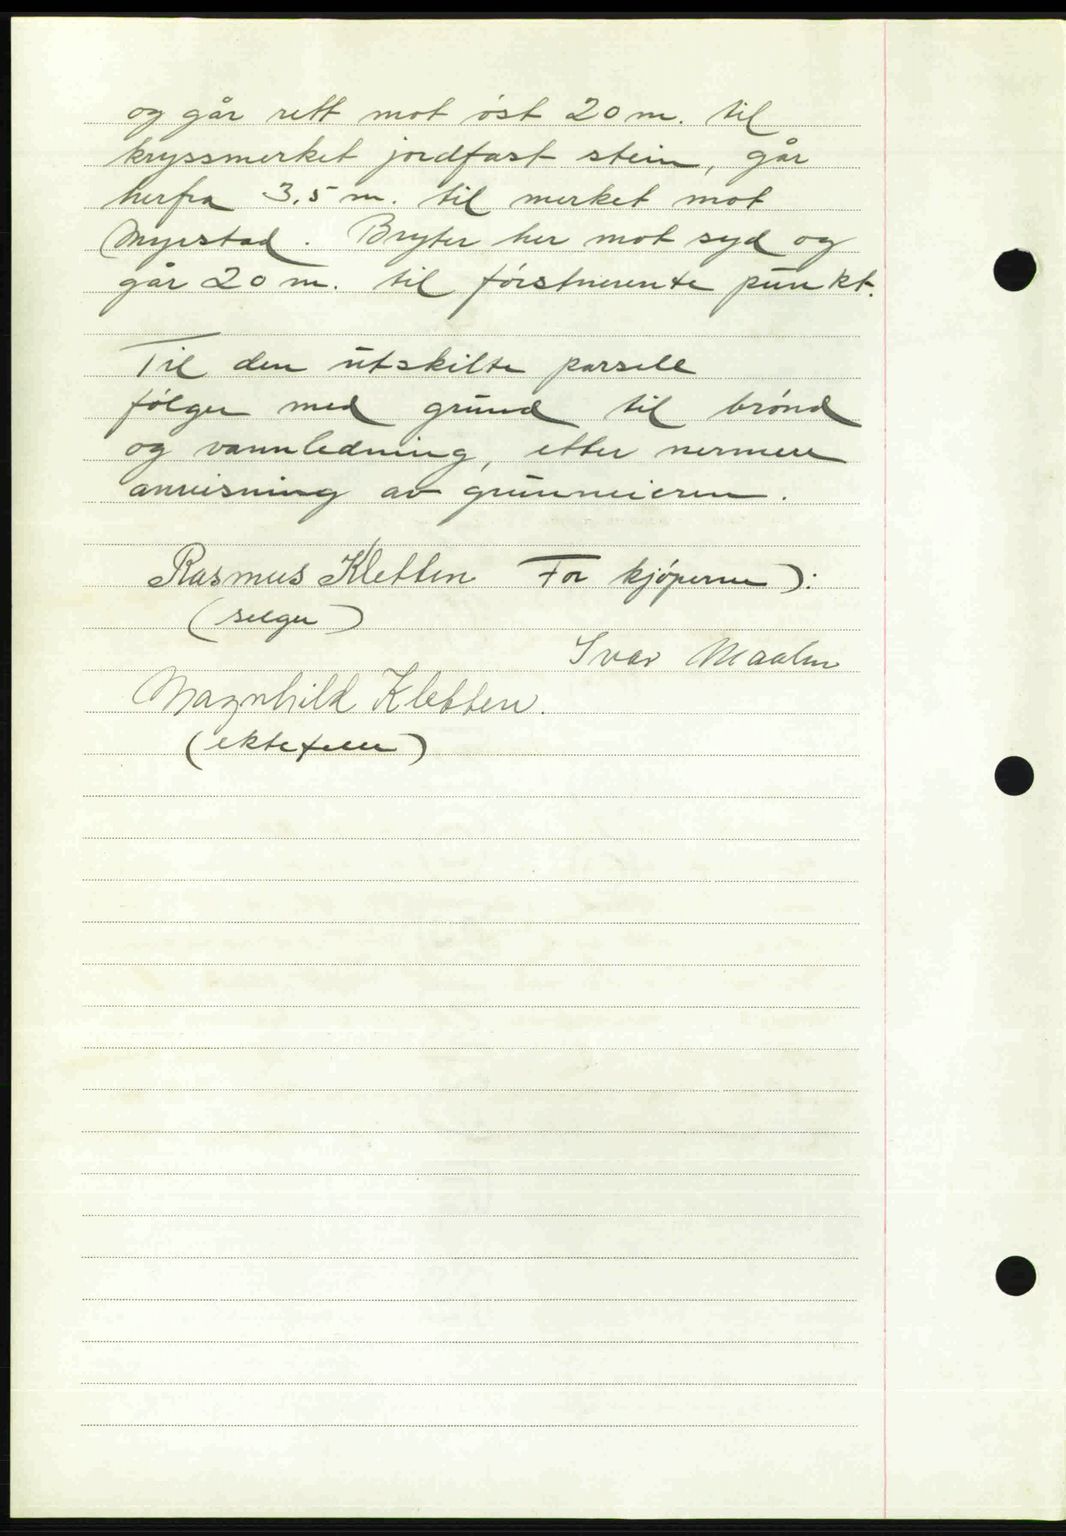 og går rett mot øst 20 m. til
kryssmerket jordfast stein, går
herfra 3,5 m. til merket mot
Myrstad. Bryter her mot syd og
går 20 m. til førstnevnte punkt.
Til den utskilte parsell
følger med grund til brønd
og vannledning, etter nermere
anvisning av grunneieren.
Rasmus Kletten For kjøperne):
(selger)
Ivar Maalen
Magnhild Kletten.
(ektefelle)